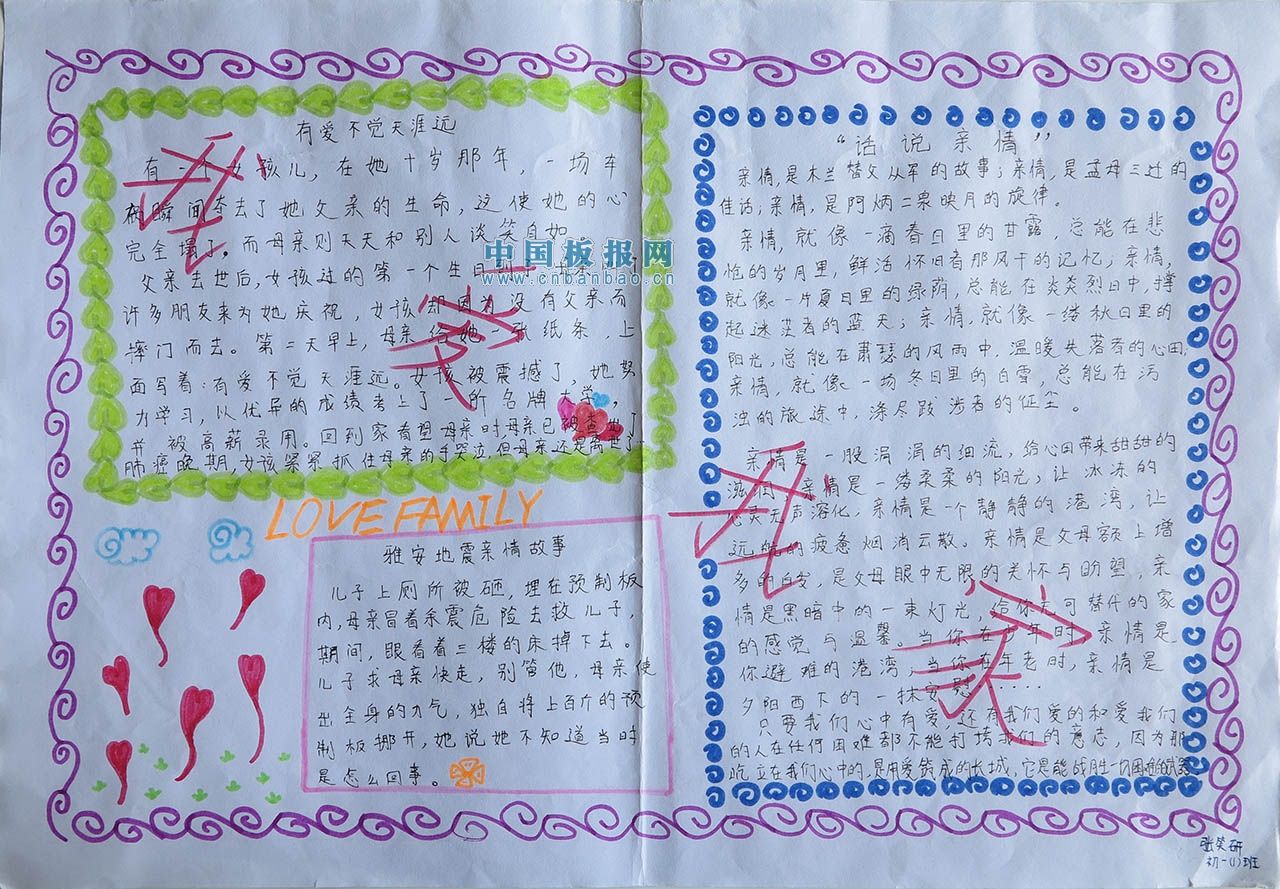 有爱不觉天涯远
有一个女孩儿，在她十岁那年，一场车
祸瞬间夺去了她父亲的生命，这使她的心
完全塌了。而母亲则天天和别人谈笑自如。
父亲去世后，女孩过的第一个生日
许多朋友来为她庆祝，女孩却因为没有父亲而
摔门而去。第二天早上，母亲给她一张纸条，上
面写着：有爱不觉天涯远。女孩被震撼了，她努
力学习，以优异的成绩考上了一所名牌大学，
并被高薪录用。回到家看望母亲时，母亲已被查出了
肺癌晚期，女孩紧紧抓住母亲的手哭泣，但母亲还是离世了
LOVE FAMILY
雅安地震亲情故事
儿子上厕所被砸，埋在预制板
内，母亲冒着余震危险去救儿子，
期间，眼看着三楼的床掉下去。
儿子求母亲快走，别管他，母亲使
出全身的力气，独自将上百斤的预
制板挪开，她说她不知道当时
是怎么回事。
“话说亲情”
亲情，是木兰替父从军的故事；亲情，是孟母三迁的
佳话；亲情，是阿炳二泉映月的旋律。
亲情，就像一滴春日里的甘露，总能在悲
怆的岁月里，鲜活怀旧者那风干的记忆；亲情，
就像一片夏日里的绿荫，总能在炎炎烈日中，撑
起迷茫者的蓝天；亲情，就像一缕秋日里的
阳光，总能在肃瑟的风雨中，温暖失落者的心田；
亲情，就像一场冬日里的白雪，总能在污
浊的旅途中涤尽跋涉者的征尘。
亲情是一股涓涓的细流，给心田带来甜甜的
滋润，亲情是一缕柔柔的阳光，让冰冻的
心灵无声溶化，亲情是一个静静的港湾，让
远航的疲惫烟消云散。亲情是父母额上增
多的白发，是父母眼中无限的关怀与盼望，亲
情是黑暗中的一束灯光，给你无可替代的家
的感觉与温馨。当你在少年时，亲情是
你避难的港湾，当你在年老时，亲情是
夕阳西下的一抹安慰……
只要我们心中有爱，还有我们爱的和爱我们
的人在任何困难都不能打垮我们的意志，因为那
屹立在我们心中的，是用爱筑成的长城，它是能战胜一切困难的武器
中国板报网
www.cnbanbao.cn
张笑研
初一(1)班